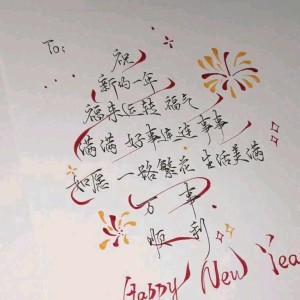 To:
祝
新的一年
福来运转 福气
满满 好事连连 事事
如愿 一路繁花 生活美满
万事
顺利
Happy New Yea